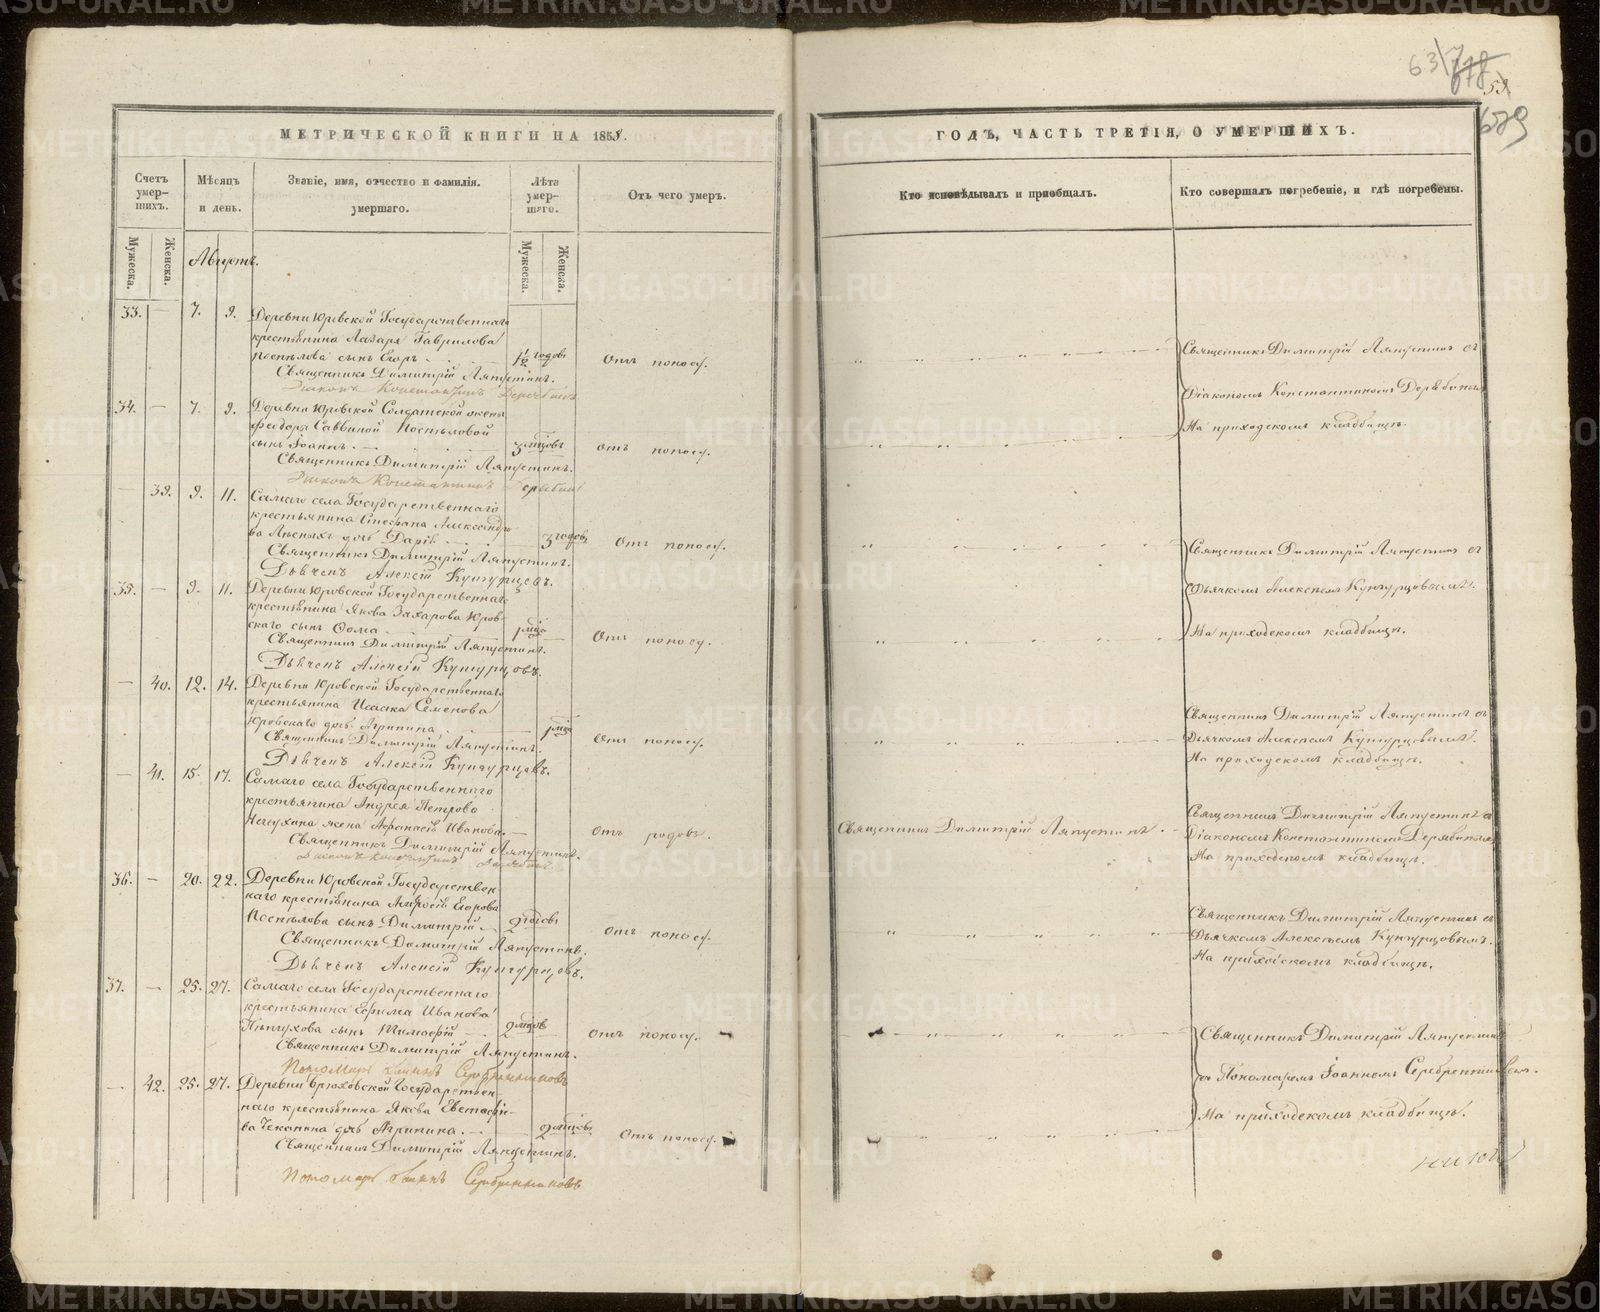 63
53
МЕТРИЧЕСКОЙ КНИГИ НА 1858.
Счетъ умер-
шихъ.
Мѣсяцъ
и день.
Званіе, имя, отчество и фамилія.
умершаго.
Лѣта
умер-
шаго.
Отъ чего умеръ.
Мужеска.
Женска.
Мужеска.
Женска.
Августъ.
33. — 7. 9. Деревни Юровской Государственнаго
крестьянина Лазаря Гаврилова
Поспѣлова сынъ Егоръ 1½ годовъ Отъ поносу.
Священникъ Димитрій Ляпустинъ.
Діаконъ Константинъ Дерябинъ
34. — 7. 9. Деревни Юровской Солдатской жены
Саввиной Поспѣловой
сынъ Іоаннъ 3 мцовъ Отъ поносу.
Священникъ Димитрій Ляпустинъ.
Діаконъ Константинъ Дерябинъ
— 39. 9. 11. Самаго села Государственнаго
крестьянина Стефана Александро
ва дочь Дарія 3 годовъ Отъ поносу.
Священникъ Димитрій Ляпустинъ.
Дьячекъ Алексій Кунгурцовъ.
35. — 9. 11. Деревни Юровской Государственнаго
крестьянина Якова Захарова Юров-
скаго сынъ Ѳома 1 мца Отъ поносу.
Священникъ Димитрій Ляпустинъ.
Дьячекъ Алексій Кунгурцовъ.
— 40. 12. 14. Деревни Юровской Государственнаго
крестьянина Исаака Семенова
Юровскаго дочь Агрипина 1 мца Отъ поносу.
Священникъ Димитрій Ляпустинъ.
Дьячекъ Алексій Кунгурцовъ.
— 41. 15. 17. Самаго села Государственнаго
крестьянина Андрея Петрова
жена Иванова. — Отъ родовъ.
Священникъ Димитрій Ляпустинъ.
Діаконъ Константинъ Дерябинъ
36. — 20. 22. Деревни Юровской Государствен
наго крестьянина Егорова
Поспѣлова сынъ Димитрій 2 годовъ Отъ поносу.
Священникъ Димитрій Ляпустинъ.
Дьячекъ Алексій Кунгурцовъ.
37. — 25. 27. Самаго села Государственнаго
крестьянина Ефима Иванова
сынъ Тимофій 2 мцовъ Отъ поносу.
Священникъ Димитрій Ляпустинъ.
Пономарь Іоаннъ Серебренниковъ
— 42. 25. 27. Деревни Брюховской Государствен-
наго крестьянина Якова Евстафі-
ва Чекалина дочь Агрипина. — 2 мцовъ Отъ поносу.
Священникъ Димитрій Ляпустинъ.
Пономарь Іоаннъ Серебренниковъ
ГОДЪ, ЧАСТЬ ТРЕТІЯ, О УМЕРШИХЪ.
Кто исповѣдывалъ и пріобщалъ.
Кто совершалъ погребеніе, и гдѣ погребены.
Священникъ Димитрій Ляпустинъ съ
Діакономъ Константиномъ Дерябинымъ
На приходскомъ кладбищѣ.
Священникъ Димитрій Ляпустинъ съ
Дьячкомъ Алексѣемъ Кунгурцовымъ.
На приходскомъ кладбищѣ.
Священникъ Димитрій Ляпустинъ съ
Дьячкомъ Алексѣемъ Кунгурцовымъ.
На приходскомъ кладбищѣ.
Священникъ Димитрій Ляпустинъ.
Священникъ Димитрій Ляпустинъ съ
Діакономъ Константиномъ Дерябинымъ
На приходскомъ кладбищѣ.
Священникъ Димитрій Ляпустинъ съ
Дьячкомъ Алексѣемъ Кунгурцовымъ.
На приходскомъ кладбищѣ.
Священникъ Димитрій Ляпустинъ
съ Пономаремъ Іоанномъ Серебренниковымъ.
На приходскомъ кладбищѣ.
METRIKI.GASO-URAL.RU